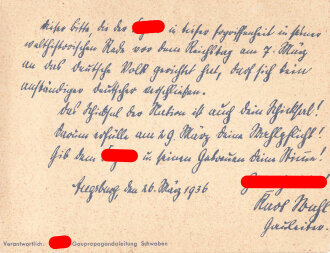 dieser bitte, die der in tiefer Ergriffenheit in seiner
welthistorischen Rede vor dem Reichstag am 7. März
an das deutsche Volk gerichtet hat, darf sich kein
anständiger Deutscher verschließen.
Das Schicksal der Nation ist auch dein Schicksal!
Darum erfülle am 29. März deine Wahlpflicht!
Gib dem u. seinen Getreuen deine Stimme!
Augsburg, den 26. März 1936
Karl Wahl
Gauleiter.
Verantwortlich: Gaupropagandaleitung Schwaben